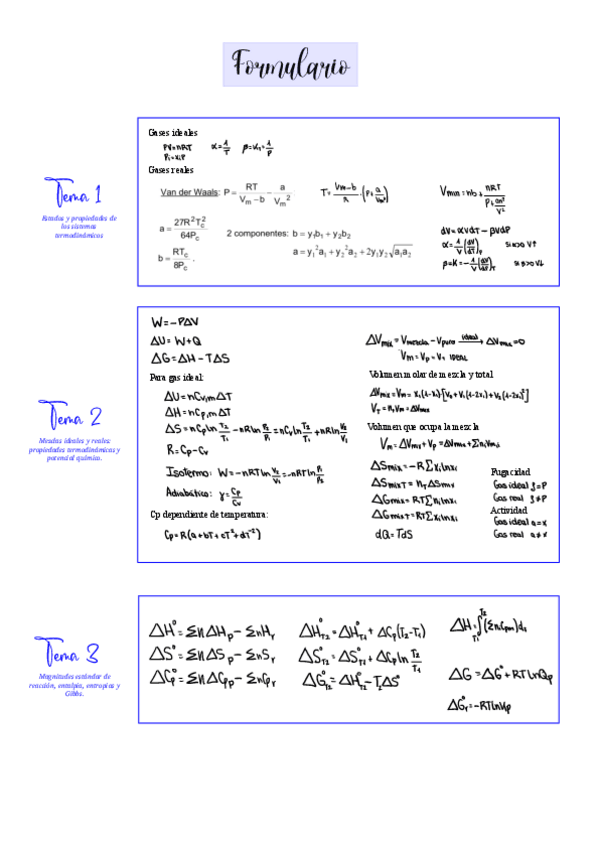 Formulario
Tema 1
Estados y propiedades de
los sistemas
termodinámicos
Gases ideales
PV=nRT α=1/T β=K_T=1/P
Pi=xiP
Gases reales
Van der Waals: P = RT/(Vm – b) – a/Vm²
a = 27R²Tc²/64Pc
b = RTc/8Pc
2 componentes: b = y1b1 + y2b2
a = y1²a1 + y2²a2 + 2y1y2√a1a2
dV=αVdT-βVdP
Tema 2
Mezclas ideales y reales:
propiedades termodinámicas y
potencial químico.
W=-PΔV
ΔU= W+Q
ΔG=ΔH-TΔS
Para gas ideal:
ΔU=nCv,mΔT
ΔH=nCp,mΔT
ΔS=nCpln T2/T1 -nRln P2/P1 =nCvln T2/T1 +nRln V2/V1
R=Cp-Cv
Isotermo: W=-nRTln V2/V1 =-nRTln P1/P2
Adiabático: γ=Cp/Cv
Cp dependiente de temperatura:
Cp=R(a+bT+cT²+dT⁻²)
ΔVmix=Vmezcla-Vpuro ideal→ ΔVmix=0
Volumen molar de mezcla y total
Volumen que ocupa la mezcla
ΔSmix=-RΣxilnxi
ΔSmixT=nTΔSmix
ΔGmix=RTΣxilnxi
dQ=TdS
Fugacidad
Gas ideal f=P
Gas real f≠P
Actividad
Gas ideal a=x
Gas real a≠x
Tema 3
Magnitudes estándar de
reacción, entalpía, entropías y
Gibbs.
ΔH°=ΣnΔHp-ΣnHr
ΔS°=ΣnΔSp-ΣnSr
ΔCp°=ΣnΔCpp-ΣnCpr
ΔH°T2=ΔH°T1+ΔCp(T2-T1)
ΔS°T2=ΔS°T1+ΔCpln T2/T1
ΔG°T2=ΔH°T2-T2ΔS°
ΔG=ΔG°+RTlnQp
ΔG°r=-RTlnKp